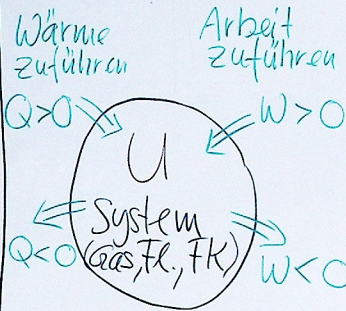 Wärme
zuführen
Arbeit
zuführen
Q>0
W>0
U
System
(Gas, Fl., FK)
Q<0
W<0